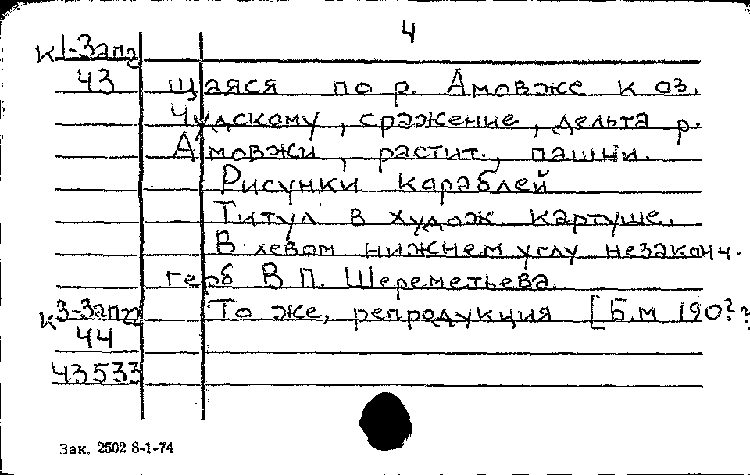 4
К1-Зап2
43 щаяся по р. Амовже к оз.
Чудскому, сражение, дельта р.
Амовжи, растит., пашни.
Рисунки кораблей
Титул в худож картуше.
В левом нижнем углу незаконч.
герб В П. Шереметьева
К3-Зап22 То же, репродукция [Б.м 190??
44
43533
Зак. 2502 8-1-74